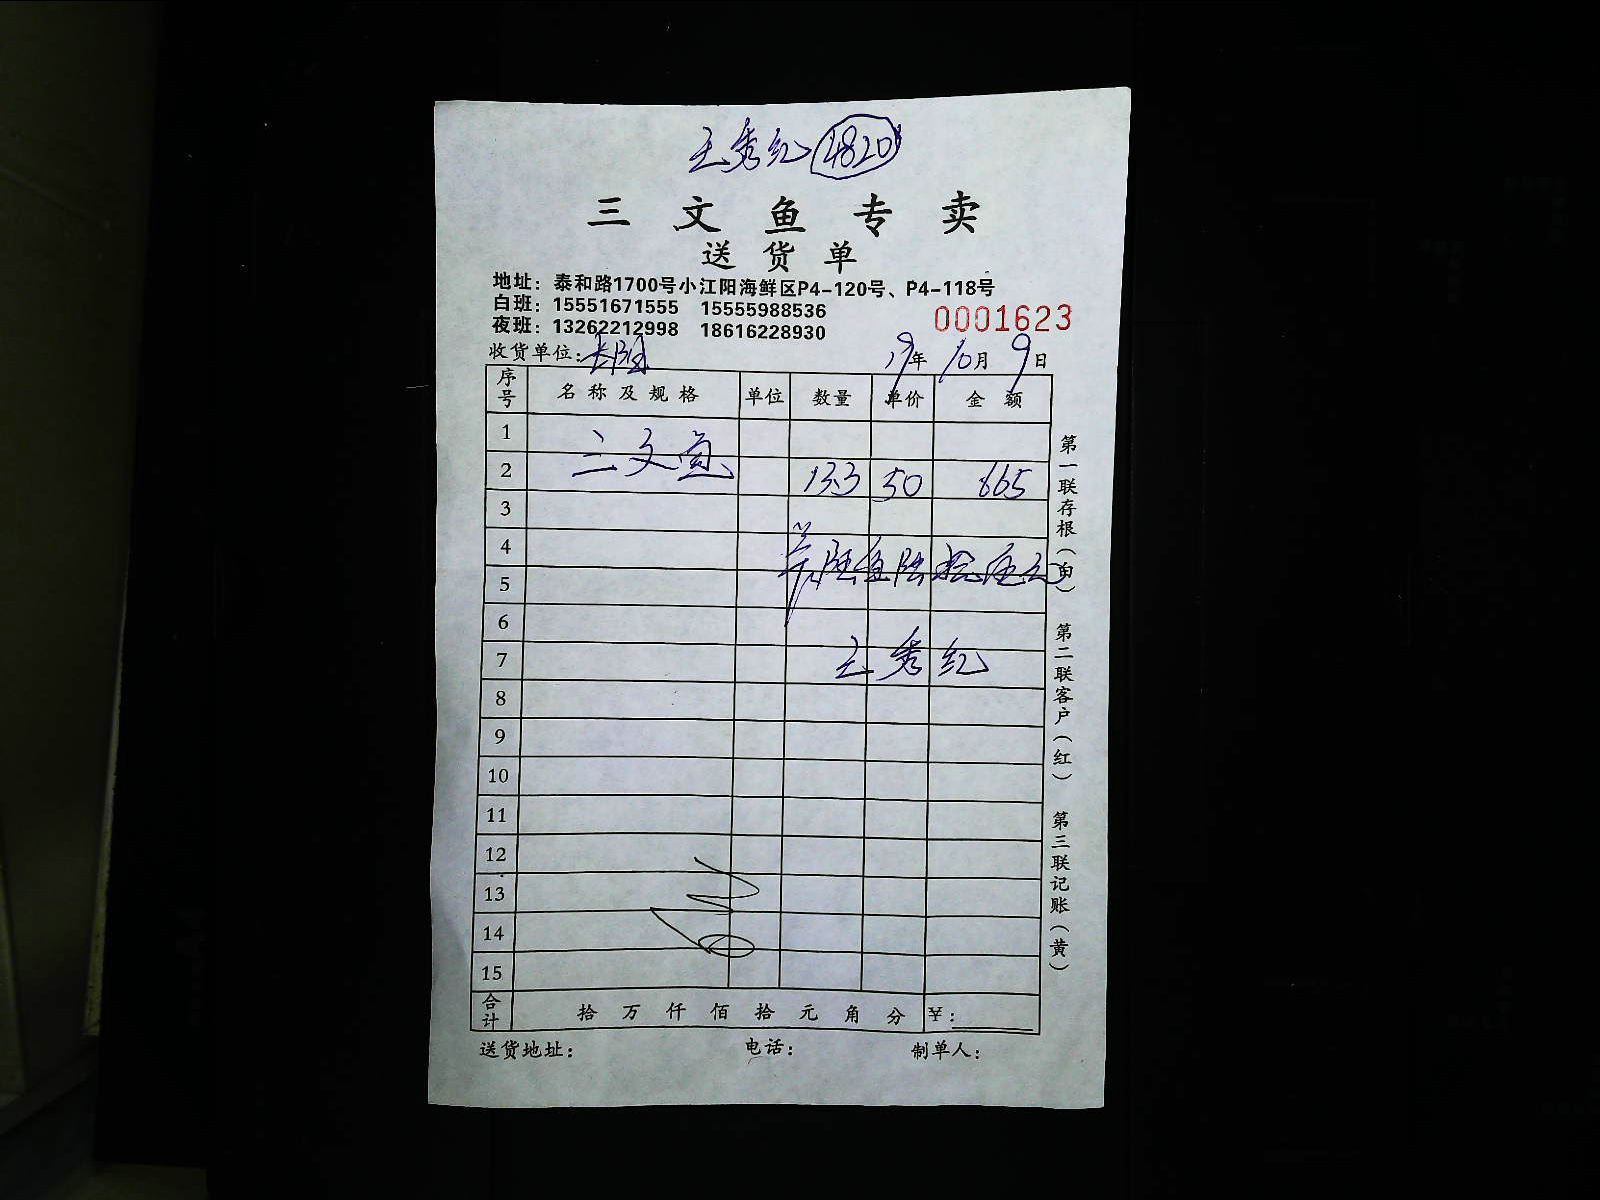 王秀红 4820
三文鱼专卖
送货单
地址：泰和路1700号小江阳海鲜区P4-120号、P4-118号
白班：15551671555 15555988536
夜班：13262212998 18616228930
0001623
收货单位：
19年10月9日
序号 名称及规格 单位 数量 单价 金额
1
2 三文鱼 13.3 50 665
3
4
5
陆佰陆拾伍元
6
7 王秀红
8
9
10
11
12
13
14
15
合计 拾万仟佰拾元角分 ￥：
送货地址： 电话： 制单人：
第一联存根（白）
第二联客户（红）
第三联记账（黄）